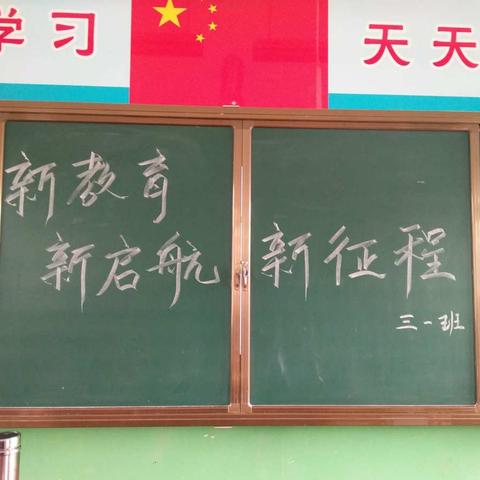 学习 天天
新教育
新启航 新征程
三一班